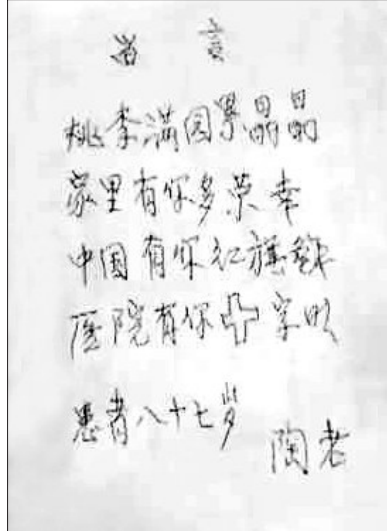 留言
桃李满园景晶晶
家里有你多荣幸
中国有你红旗飘
医院有你十字明
患者八十七岁
陶老